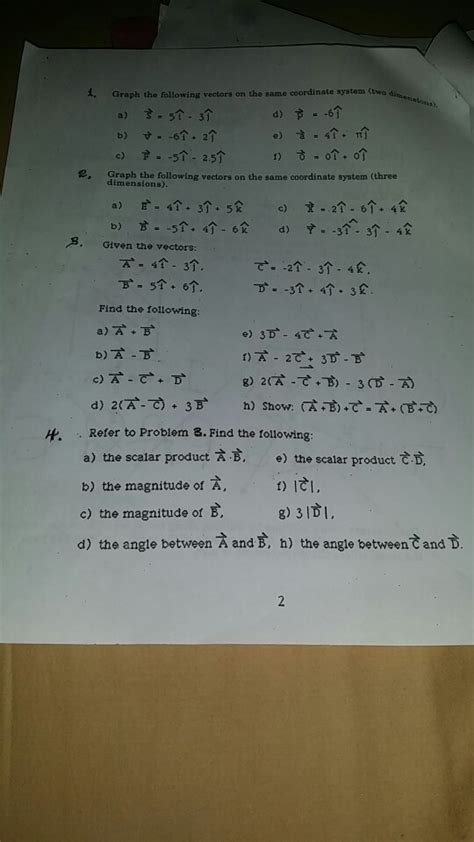 1. Graph the following vectors on the same coordinate system (two dimensions).
a) S⃗ = 5î - 3ĵ d) p⃗ = -6ĵ
b) v⃗ = -6î + 2ĵ e) a⃗ = 4î + πĵ
c) F⃗ = -5î - 2.5ĵ f) O⃗ = 0î + 0ĵ
2. Graph the following vectors on the same coordinate system (three
dimensions).
a) E⃗ = 4î + 3ĵ + 5k̂ c) R⃗ = 2î - 6ĵ + 4k̂
b) B⃗ = -5î + 4ĵ - 6k̂ d) Y⃗ = -3î - 3ĵ - 4k̂
3. Given the vectors:
A⃗ = 4î - 3ĵ, C⃗ = -2î - 3ĵ - 4k̂,
B⃗ = 5î + 6ĵ, D⃗ = -3î + 4ĵ + 3k̂.
Find the following:
a) A⃗ + B⃗ e) 3D⃗ - 4C⃗ + A⃗
b) A⃗ - B⃗ f) A⃗ - 2C⃗ + 3D⃗ - B⃗
c) A⃗ - C⃗ + D⃗ g) 2(A⃗ - C⃗ + B⃗) - 3(D⃗ - A⃗)
d) 2(A⃗ - C⃗) + 3B⃗ h) Show: (A⃗ + B⃗) + C⃗ = A⃗ + (B⃗ + C⃗)
4. Refer to Problem 3. Find the following:
a) the scalar product A⃗·B⃗, e) the scalar product C⃗·D⃗,
b) the magnitude of A⃗, f) |C⃗|,
c) the magnitude of B⃗, g) 3|D⃗|,
d) the angle between A⃗ and B⃗, h) the angle between C⃗ and D⃗.
2